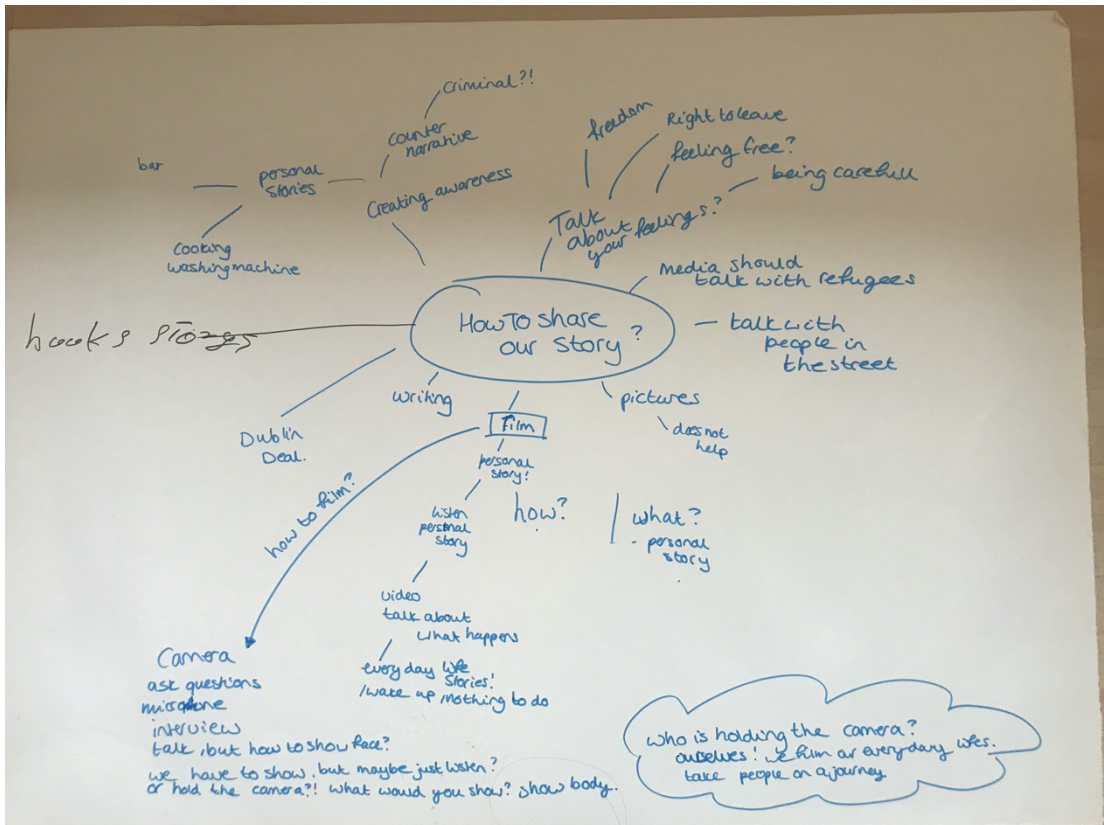 criminal?!
counter
narrative
Creating awareness
personal
stories
bar
cooking
washingmachine
freedom
Right to leave
feeling free?
being carefull
Talk
about
your feelings?
media should
talk with refugees
talk with
people in
the street
How To share
our story?
books
writing
Dublin
Deal.
Film
pictures
does not
help
personal
story!
how?
what?
- personal
story
listen
personal
story
how to film?
video
talk about
what happens
every day life
stories!
/wake up /nothing to do
Camera
ask questions
microphone
interview
talk, but how to show face?
we have to show, but maybe just listen?
or hold the camera?! what would you show? show body.
who is holding the camera?
ourselves! we film our everyday lifes.
take people on a journey